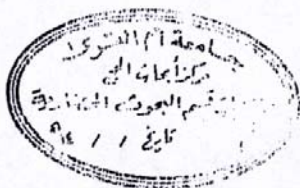 جامعة أم القرى
مركز أبحاث الحج
قسم البحوث الحضارية
تاريخ / / ١٤